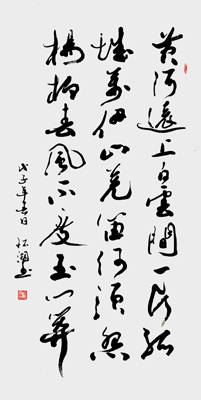 黄河遠上白雲間一片孤
城萬仞山羌笛何須怨
楊柳春風不度玉門關
戊子年春日書